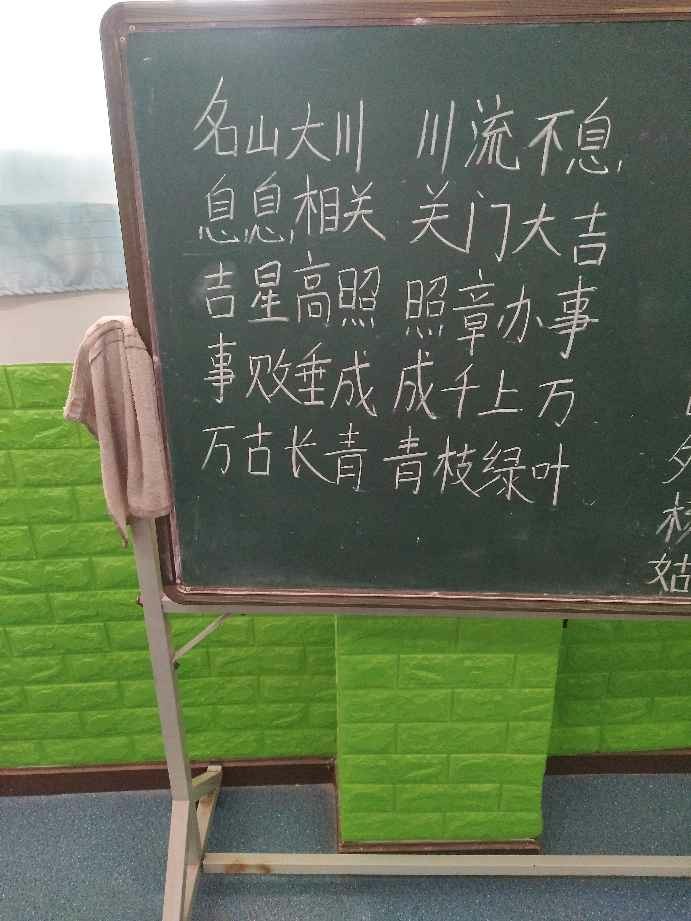 名山大川 川流不息
息息相关 关门大吉
吉星高照 照章办事
事败垂成 成千上万
万古长青 青枝绿叶
姑